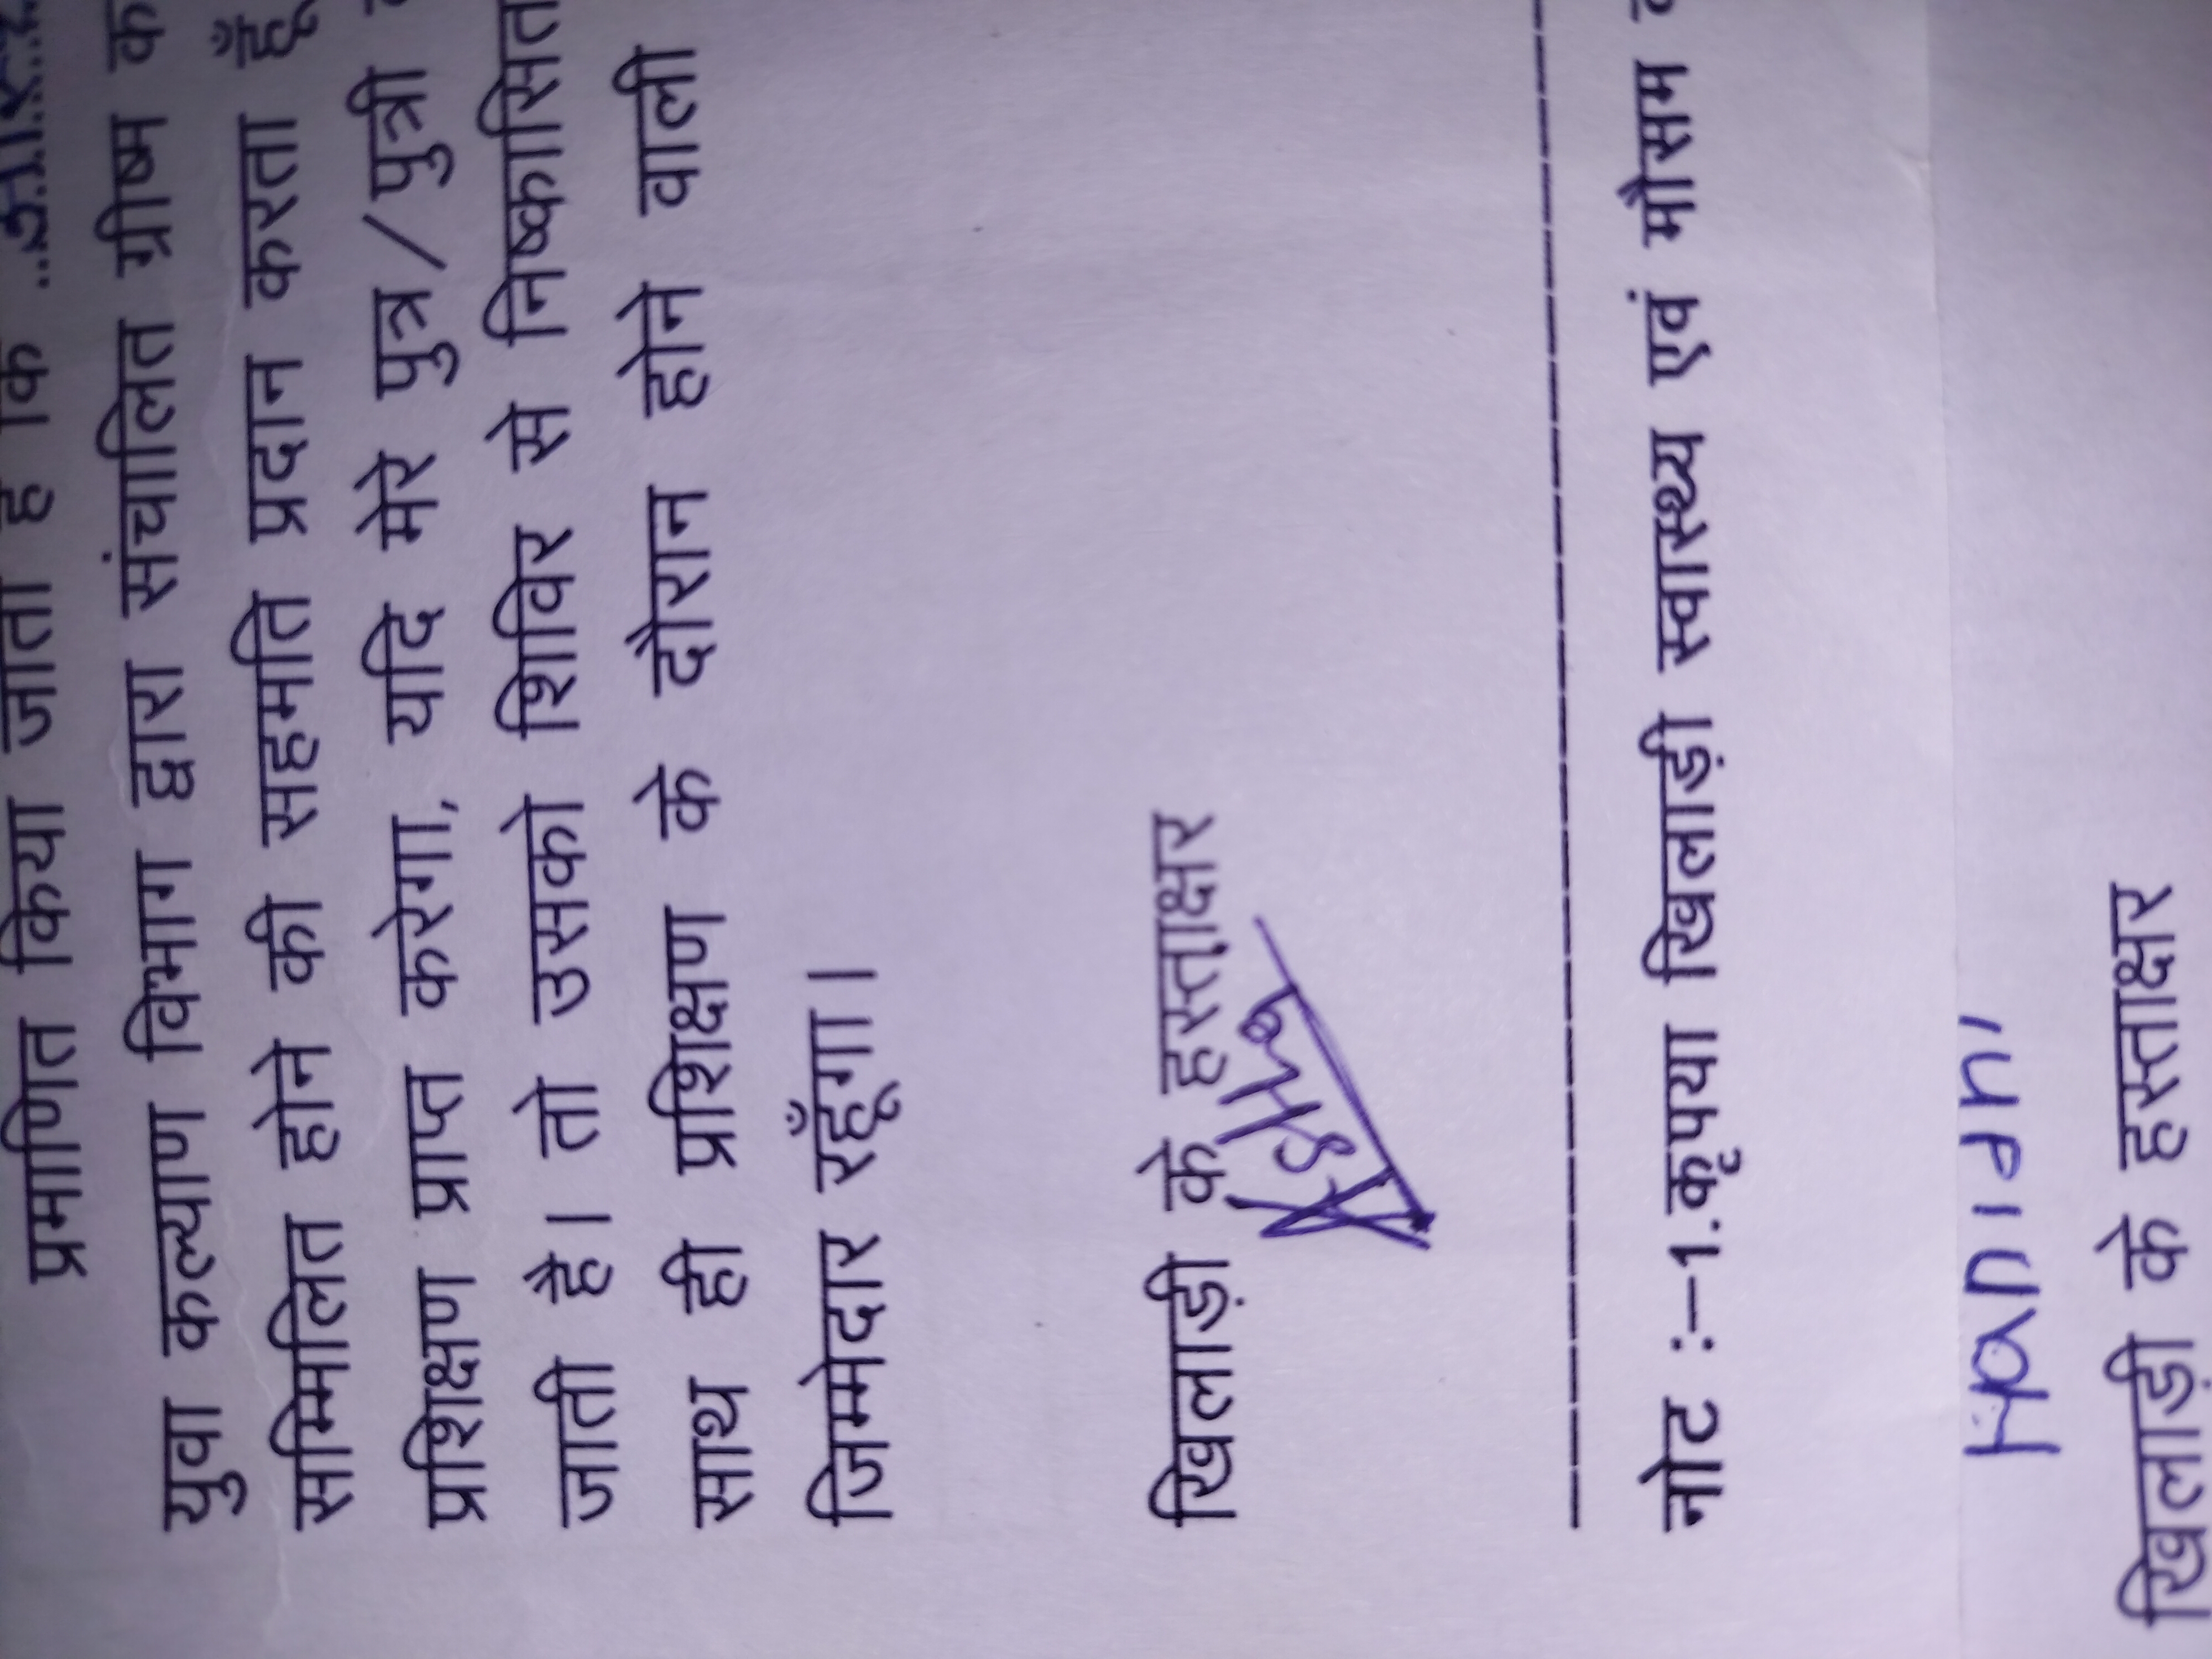 प्रमाणित किया जाता है कि
युवा कल्याण विभाग द्वारा संचालित ग्रीष्म
सम्मिलित होने की सहमति प्रदान करता हूँ
प्रशिक्षण प्राप्त करेगा, यदि मेरे पुत्र/पुत्री
जाती है। तो उसको शिविर से निष्कासित
साथ ही प्रशिक्षण के दौरान होने वाली
जिम्मेदार रहूँगा।
खिलाड़ी के हस्ताक्षर
नोट :-1.कृपया खिलाड़ी स्वास्थ्य एवं मौसम
खिलाड़ी के हस्ताक्षर